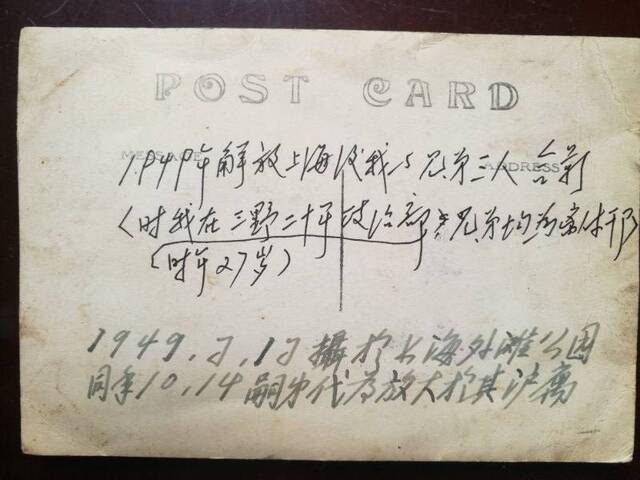 POST CARD
MESSAGE ADDRESS
1949年解放上海后我与兄弟三人合影
(时我在三野二十军政治部 兄弟均为
(时年27岁)
1949.7.17攝於上海外滩公园
同年10.14嗣中代为放大於其沪寓